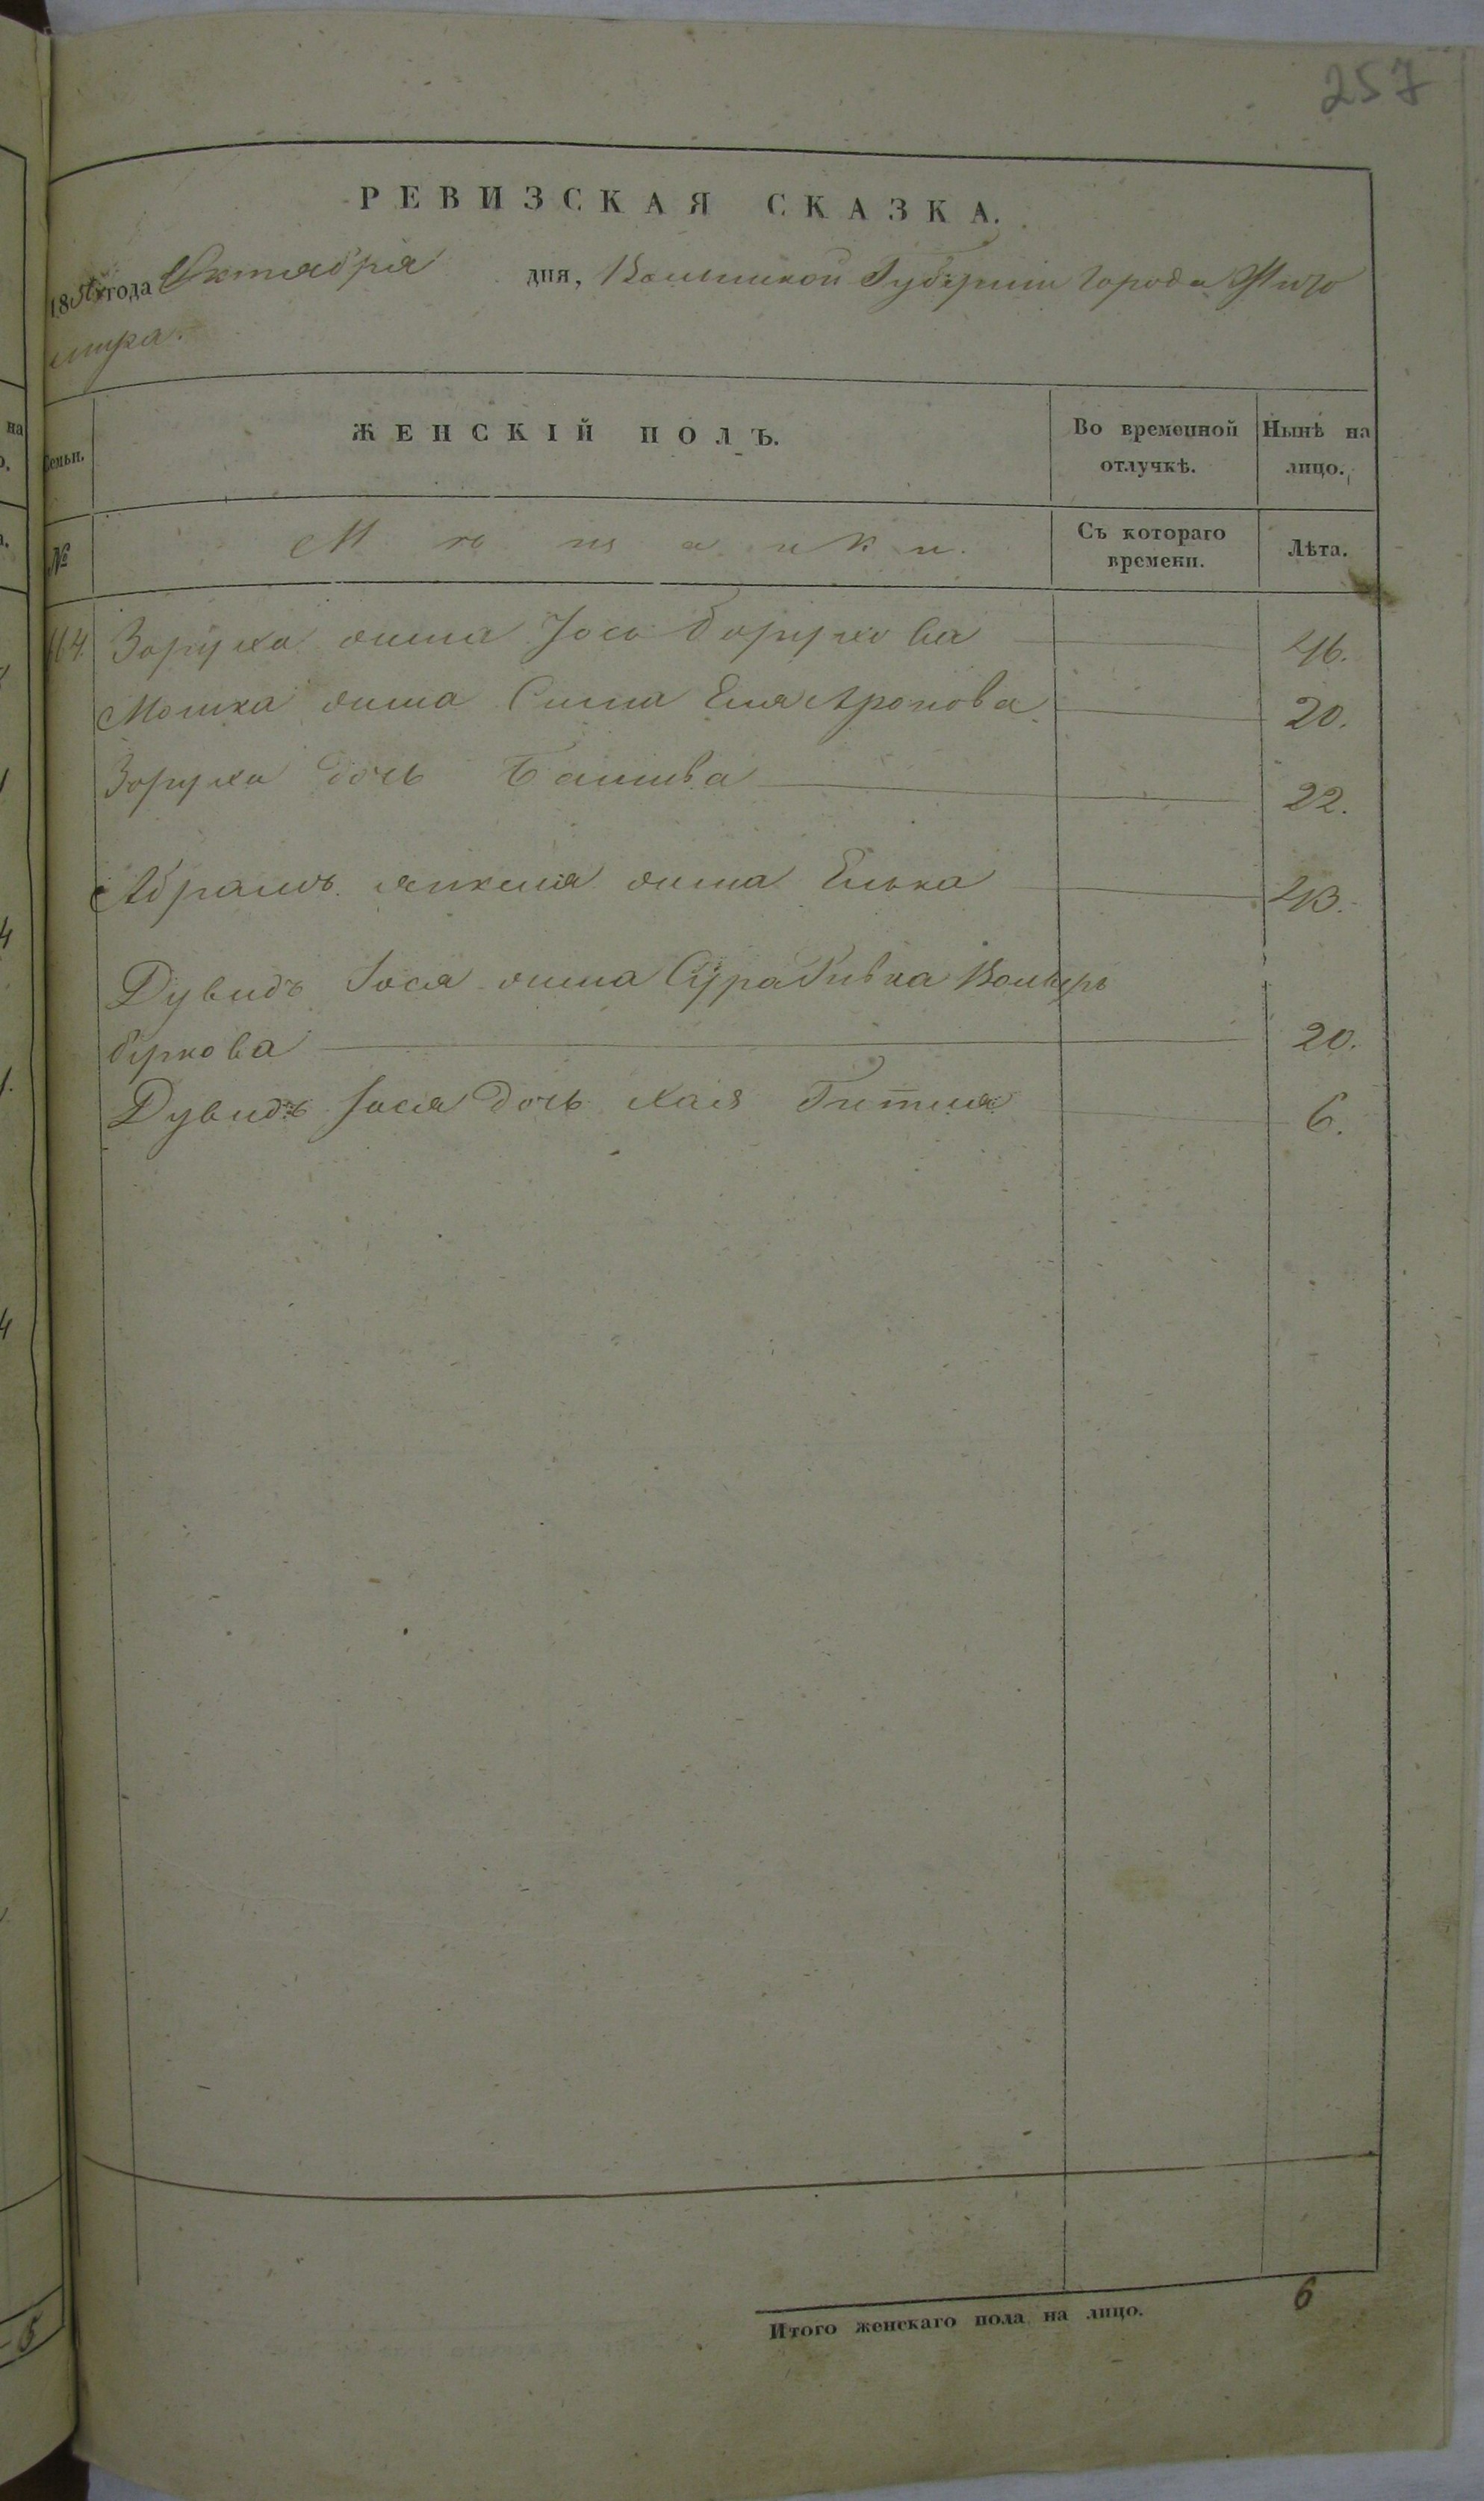 257
РЕВИЗСКАЯ СКАЗКА.
185 года Октября дня, Волынской Губернiи Города Жито
мира.
Семьи. ЖЕНСКІЙ ПОЛЪ. Во временной отлучкѣ. Нынѣ на лицо.
№ Мѣщанки. Съ котораго времени. Лѣта.
Зоруха жена Роса Борухова 46.
Мошка жена Сима Еля Аронова 20.
Зоруха дочь Башива 22.
Абрамъ Янкеля жена Елька 43.
Дувидъ Іося жена Сура Ривка Вольтеръ
беркова 20.
Дувидъ Іося дочь Хая Гитля 6.
Итого женскаго пола на лицо. 6